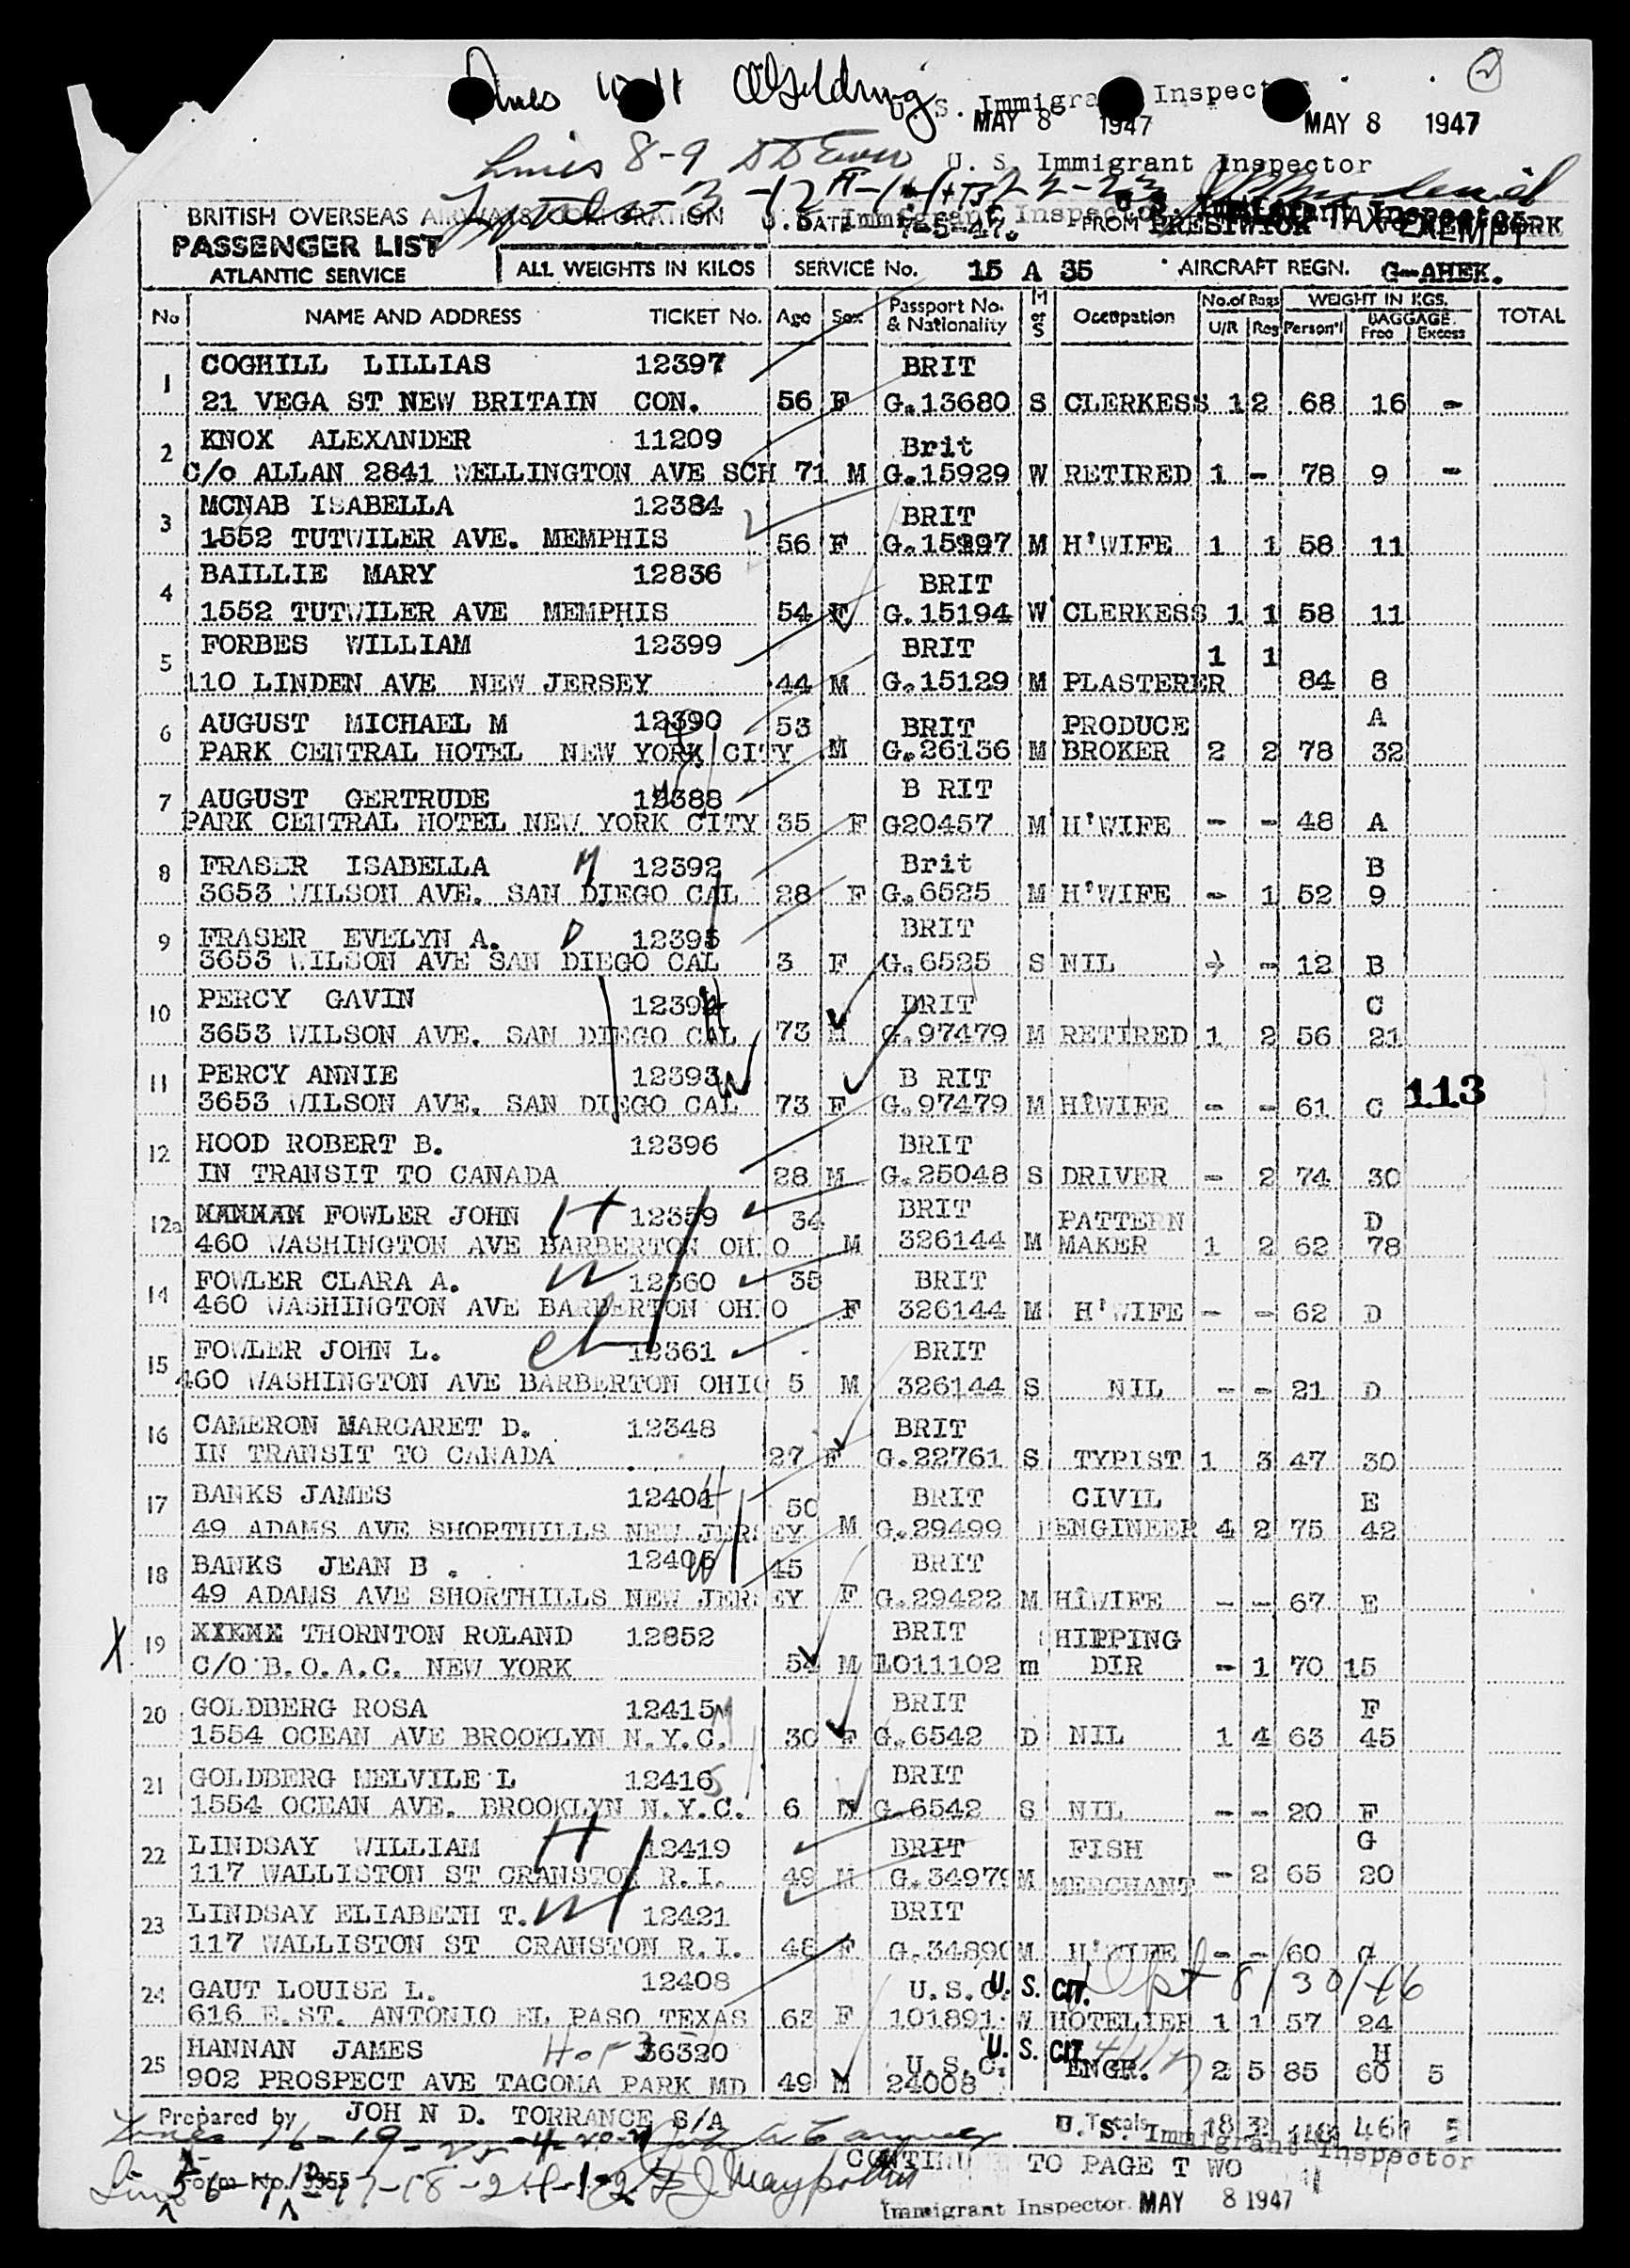 Lines 10-11
U. S. Immigrant Inspector
MAY 8 1947 MAY 8 1947
Lines 8-9
U. S. Immigrant Inspector
BRITISH OVERSEAS AIRWAYS CORPORATION DATE 7-5-47. FROM PRESTWICK
PASSENGER LIST
ATLANTIC SERVICE ALL WEIGHTS IN KILOS SERVICE No. 15 A 35 AIRCRAFT REGN. G-AHEK.
No NAME AND ADDRESS TICKET No. Age Sex Passport No. & Nationality M or S Occupation No.of Bags U/R Reg WEIGHT IN KGS. Person'l BAGGAGE Free Excess TOTAL
1 COGHILL LILLIAS 12397 BRIT
21 VEGA ST NEW BRITAIN CON. 56 F G.13680 S CLERKESS 1 2 68 16 -
2 KNOX ALEXANDER 11209 Brit
C/o ALLAN 2841 WELLINGTON AVE SCH 71 M G.15929 W RETIRED 1 - 78 9 -
3 MCNAB ISABELLA 12384 BRIT
1552 TUTWILER AVE. MEMPHIS 56 F G.15397 M H'WIFE 1 1 58 11
4 BAILLIE MARY 12836 BRIT
1552 TUTWILER AVE MEMPHIS 54 F G.15194 W CLERKESS 1 1 58 11
5 FORBES WILLIAM 12399 BRIT 1 1
110 LINDEN AVE NEW JERSEY 44 M G.15129 M PLASTERER 84 8
6 AUGUST MICHAEL M 12390 53 BRIT PRODUCE A
PARK CENTRAL HOTEL NEW YORK CITY M G.26136 M BROKER 2 2 78 32
7 AUGUST GERTRUDE 12388 B RIT
PARK CENTRAL HOTEL NEW YORK CITY 35 F G20457 M H'WIFE - - 48 A
8 FRASER ISABELLA M 12392 Brit B
3653 WILSON AVE. SAN DIEGO CAL 28 F G.6525 M H'WIFE - 1 52 9
9 FRASER EVELYN A. D 12395 BRIT
3653 WILSON AVE SAN DIEGO CAL 3 F G.6525 S NIL - - 12 B
10 PERCY GAVIN 12394 BRIT C
3653 WILSON AVE. SAN DIEGO CAL 73 M G.97479 M RETIRED 1 2 56 21
11 PERCY ANNIE 12393 W B RIT
3653 WILSON AVE. SAN DIEGO CAL 73 F G.97479 M H'WIFE - - 61 C 113
12 HOOD ROBERT B. 12396 BRIT
IN TRANSIT TO CANADA 28 M G.25048 S DRIVER - 2 74 30
12a FOWLER JOHN H 12359 34 BRIT PATTERN D
460 WASHINGTON AVE BARBERTON OHIO M 326144 M MAKER 1 2 62 78
14 FOWLER CLARA A. W 12360 35 BRIT
460 WASHINGTON AVE BARBERTON OHIO F 326144 M H'WIFE - - 62 D
15 FOWLER JOHN L. ch 12361 BRIT
460 WASHINGTON AVE BARBERTON OHIO 5 M 326144 S NIL - - 21 D
16 CAMERON MARGARET D. 12348 BRIT
IN TRANSIT TO CANADA 27 F G.22761 S TYPIST 1 3 47 30
17 BANKS JAMES 12404 H 50 BRIT CIVIL E
49 ADAMS AVE SHORTHILLS NEW JERSEY M G.29499 ENGINEER 4 2 75 42
18 BANKS JEAN B . 12406 W 45 BRIT
49 ADAMS AVE SHORTHILLS NEW JERSEY F G.29422 M H'WIFE - - 67 E
X 19 THORNTON ROLAND 12852 BRIT SHIPPING
C/O B.O.A.C. NEW YORK 54 M L011102 m DIR - 1 70 15
20 GOLDBERG ROSA 12415 M BRIT F
1554 OCEAN AVE BROOKLYN N.Y.C. 30 F G.6542 D NIL 1 4 63 45
21 GOLDBERG MELVILE L 12416 S BRIT
1554 OCEAN AVE. BROOKLYN N.Y.C. 6 M G.6542 S NIL - - 20 F
22 LINDSAY WILLIAM H 12419 BRIT FISH G
117 WALLISTON ST CRANSTON R.I. 49 M G.34979 M MERCHANT - 2 65 20
23 LINDSAY ELIABETH T. W 12421 BRIT
117 WALLISTON ST CRANSTON R.I. 48 F G.34890 M H'WIFE - - 60 G
24 GAUT LOUISE L. 12408 U.S.C. U. S. CIT. Dpt 8/30/46
616 E.ST. ANTONIO EL PASO TEXAS 63 F 101891 W HOTELIER 1 1 57 24
25 HANNAN JAMES 36320 U.S.C. U. S. CIT. H
902 PROSPECT AVE TACOMA PARK MD 49 M 24008 ENGR. 2 5 85 60 5
Prepared by JOH N D. TORRANCE S/A Totals 461 5
U. S. Immigrant Inspector
CONTINUE TO PAGE T WO
Form No.
Immigrant Inspector. MAY 8 1947